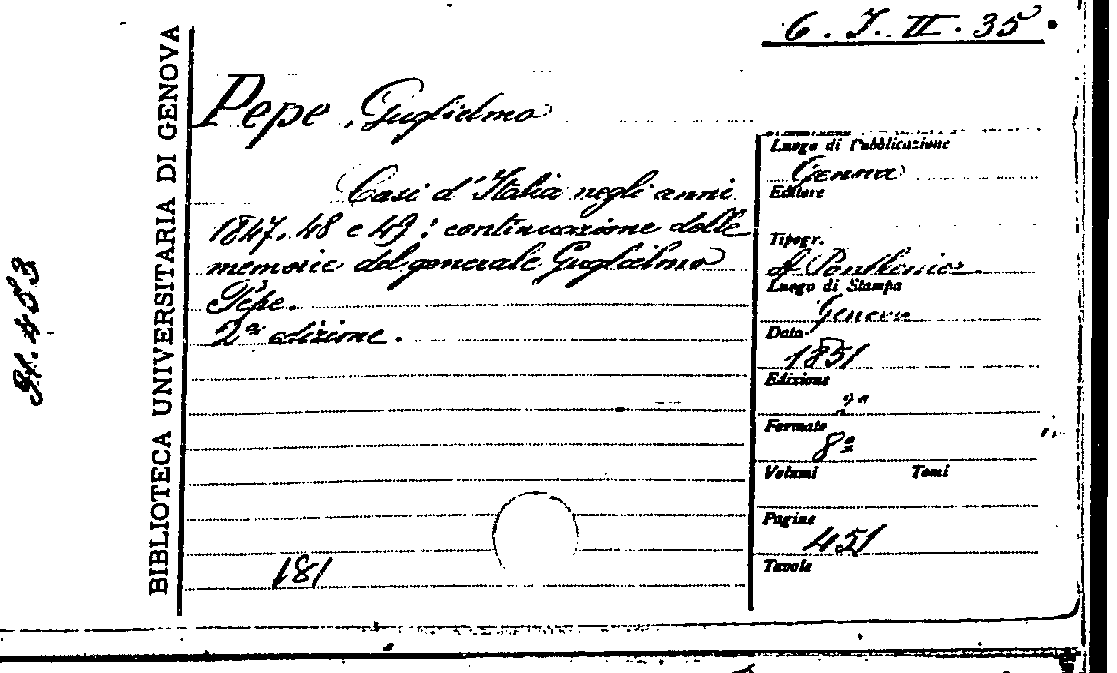 6. J. II. 35.
BIBLIOTECA UNIVERSITARIA DI GENOVA
Pepe, Guglielmo
Casi d'Italia negli anni
1847, 48 e 49: continuazione delle
memorie del generale Guglielmo
Pepe.
2ª edizione.
181
Luogo di Pubblicazione
Genova
Editore
Tipogr.
Luogo di Stampa
Genova
Data
1851
Edizione
2ª
Formato
8º
Volumi Tomi
Pagine
451
Tavole